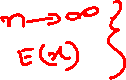 n → ∞ }
E(x)